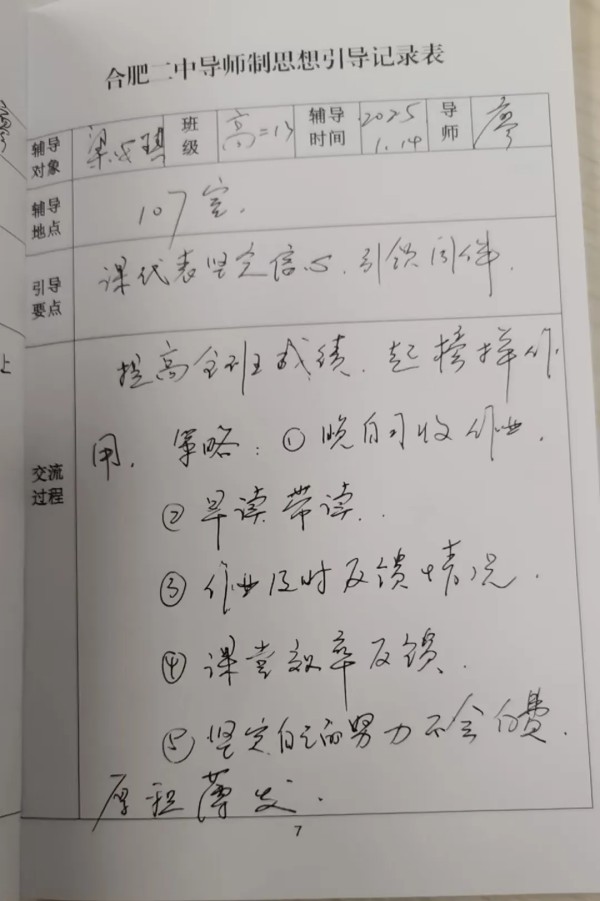 合肥二中导师制思想引导记录表
辅导对象 梁 琪 班级 高二13 辅导时间 2025 1.14 导师 廖
辅导地点 107室.
引导要点 课代表坚定信心.引领同伴.
交流过程
提高全班成绩.起榜样作
用.策略:①晚自习收作业.
②早读带读.
③作业及时反馈情况.
④课堂效率反馈.
⑤坚定自己的努力不会白费.
厚积薄发.
上
7